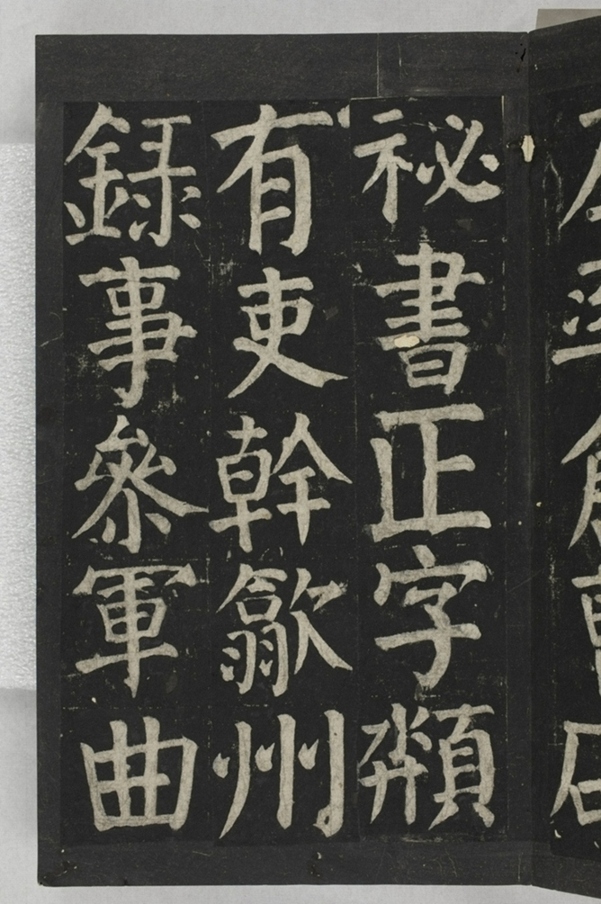 祕書正字
有吏幹歙州
録事參軍曲